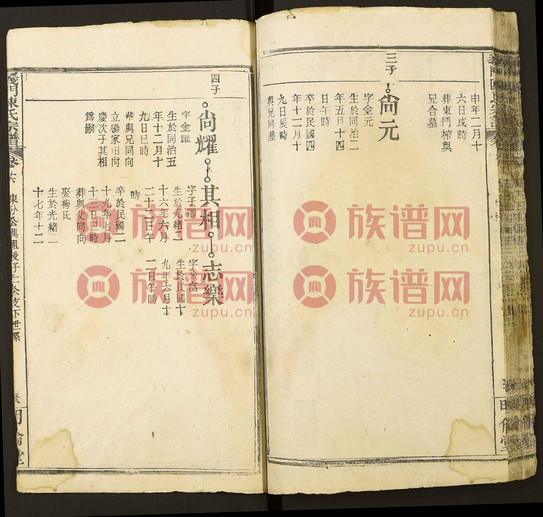 申年二月十
六日戌時
葬東門榨與
兄合墓
三子
尙元
字金元
生於同治二
年五月十四
日午時
卒於民國四
年十二月十
九日辰時
與兄同墓
四子
尙耀
字金耀
生於同治五
年十二月十
九日巳時
葬與兄同向
立堯家田向
慶次子其相
爲嗣
其相
生於光緒二
十六年六月
二十二日午
時
卒於民國二
十九年七月
十三日巳時
葬與父同向
娶梅氏
生於光緒二
十七年十二
志樂
生於民國十
九年六月十
一日午時
族谱网
zupu.cn
族谱网
zupu.cn
族谱网
zupu.cn
族谱网
zupu.cn